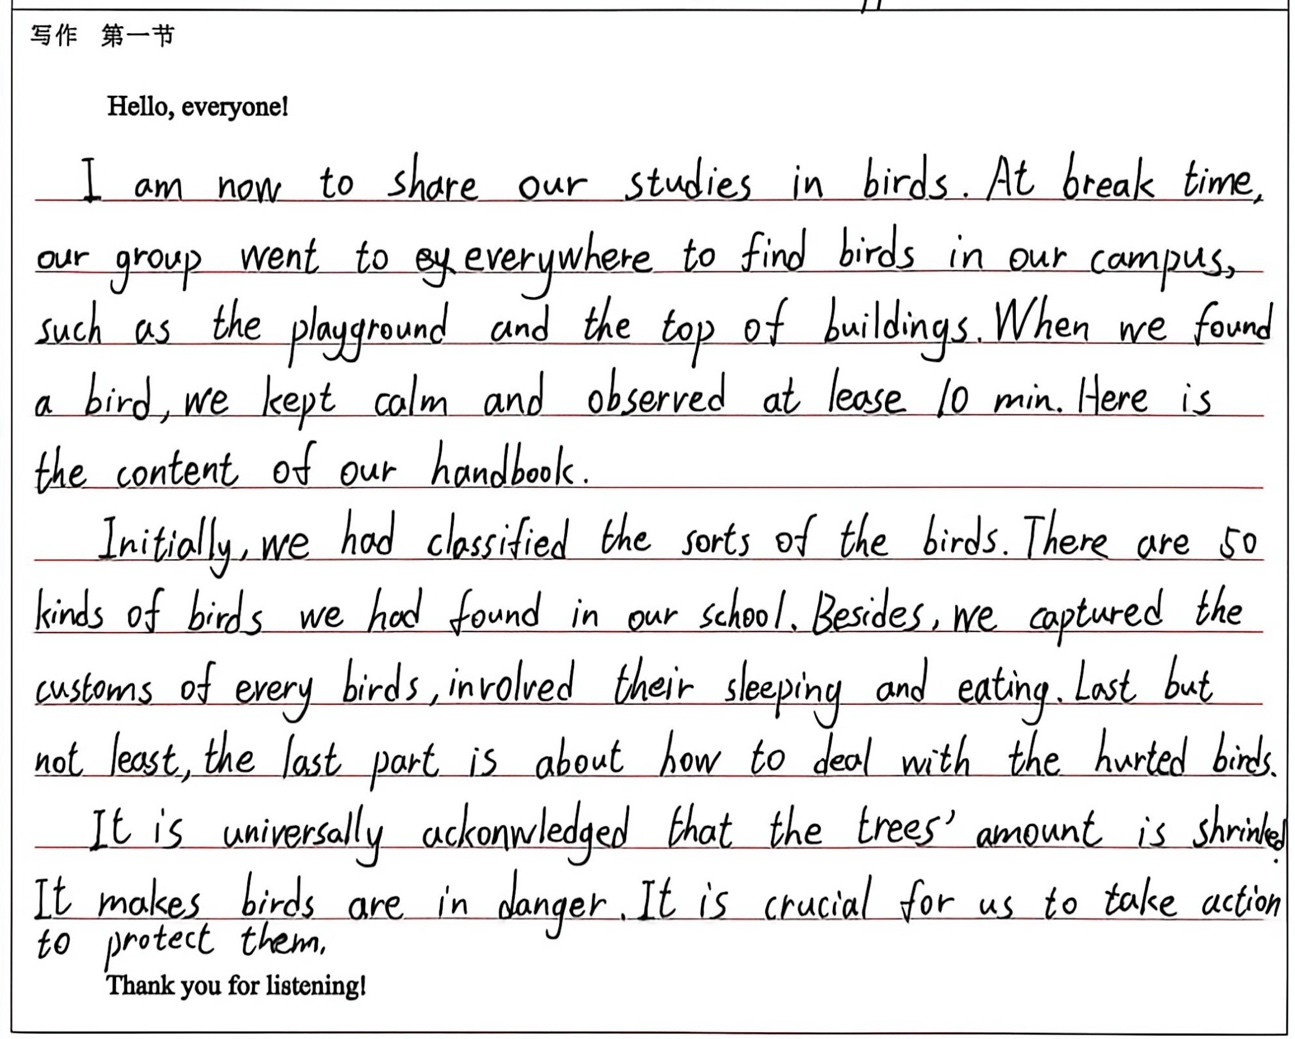 写作 第一节
Hello, everyone!
I am now to share our studies in birds. At break time,
our group went to everywhere to find birds in our campus,
such as the playground and the top of buildings. When we found
a bird, we kept calm and observed at lease 10 min. Here is
the content of our handbook.
Initially, we had classified the sorts of the birds. There are 50
kinds of birds we had found in our school. Besides, we captured the
customs of every birds, involved their sleeping and eating. Last but
not least, the last part is about how to deal with the hurted birds.
It is universally ackonwledged that the trees' amount is shrinked.
It makes birds are in danger. It is crucial for us to take action
to protect them.
Thank you for listening!